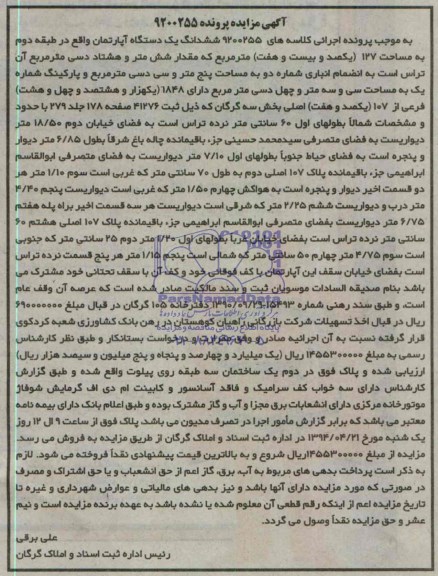 آگهی مزایده پرونده ۹۲۰۰۲۵۵
به موجب پرونده اجرائی کلاسه های ۹۲۰۰۲۵۵ ششدانگ یک دستگاه آپارتمان واقع در طبقه دوم
به مساحت ۱۲۷ (یکصد و بیست و هفت) مترمربع که مقدار شش متر و هشتاد دسی مترمربع آن
تراس است به انضمام انباری شماره دو به مساحت پنج متر و سی دسی مترمربع و پارکینگ شماره
یک به مساحت سی و سه متر و چهل دسی متر مربع دارای ۱۸۴۸ (یکهزار و هشتصد و چهل و هشت)
فرعی از ۱۰۷ (یکصد و هفت) اصلی بخش سه گرگان که ذیل ثبت ۴۱۲۷۶ صفحه ۱۷۸ جلد ۲۷۹ با حدود
و مشخصات شمالاً بطولهای اول ۶۰ سانتی متر نرده تراس است به فضای خیابان دوم ۱۸/۵۰ متر
دیواریست به فضای متصرفی سیدمحمد حسینی جزء باقیمانده چاله باغ شرقاً بطول ۶/۸۵ متر دیوار
و پنجره است به فضای حیاط جنوباً بطولهای اول ۷/۱۰ متر دیواریست به فضای متصرفی ابوالقاسم
ابراهیمی جزء باقیمانده پلاک ۱۰۷ اصلی دوم به طول ۷۰ سانتی متر که غربی است سوم ۱/۱۰ متر هر
دو قسمت اخیر دیوار و پنجره است به هواکش چهارم ۱/۵۰ متر که غربی است دیواریست پنجم ۴/۴۰
متر درب و دیواریست ششم ۲/۲۵ متر که شرقی است دیواریست هر سه قسمت اخیر براه پله هفتم
۶/۷۵ متر دیواریست بفضای متصرفی ابوالقاسم ابراهیمی جزء باقیمانده پلاک ۱۰۷ اصلی هشتم ۶۰
سانتی متر نرده تراس است بفضای خیابان غرباً بطولهای اول ۱/۲۰ متر دوم ۲۵ سانتی متر که جنوبی
است سوم ۴/۷۵ متر چهارم ۵۰ سانتی متر که شمالی است پنجم ۱/۱۵ متر هر پنج قسمت نرده تراس
است بفضای خیابان سقف این آپارتمان با کف فوقانی خود و کف آن با سقف تحتانی خود مشترک می
باشد بنام صدیقه السادات موسویان ثبت و سند مالکیت صادر شده است که عرصه آن وقف عام
است، و طبق سند رهنی شماره ۱۵۴۹۳-۱۳۹۰/۰۹/۲۳ دفترخانه ۱۰۵ گرگان در قبال مبلغ ۶۹۰۰۰۰۰۰۰
ریال در قبال اخذ تسهیلات شرکت بازرگانی راهیان کوهستان در رهن بانک کشاورزی شعبه کردکوی
قرار گرفته نسبت به آن اجرائیه صادر و وفق مقررات و درخواست بستانکار و طبق نظر کارشناس
رسمی به مبلغ ۱۴۵۵۳۰۰۰۰۰ ریال (یک میلیارد و چهارصد و پنجاه و پنج میلیون و سیصد هزار ریال)
ارزیابی شده و پلاک فوق در دوم یک ساختمان سه طبقه روی پیلوت واقع شده و طبق گزارش
کارشناس دارای سه خواب کف سرامیک و فاقد آسانسور و کابینت ام دی اف گرمایش شوفاژ
موتورخانه مرکزی دارای انشعابات برق مجزا و آب و گاز مشترک بوده و طبق اعلام بانک دارای بیمه نامه
معتبر می باشد که برابر گزارش مأمور اجرا در تصرف مدیون می باشد، پلاک فوق از ساعت ۹ الی ۱۲ روز
یک شنبه مورخ ۱۳۹۴/۰۴/۲۱ در اداره ثبت اسناد و املاک گرگان از طریق مزایده به فروش می رسد.
مزایده از مبلغ ۱۴۵۵۳۰۰۰۰۰ریال شروع و به بالاترین قیمت پیشنهادی نقداً فروخته می شود. لازم
به ذکر است پرداخت بدهی های مربوط به آب، برق، گاز اعم از حق انشعباب و یا حق اشتراک و مصرف
در صورتی که مورد مزایده دارای آنها باشد و نیز بدهی های مالیاتی و عوارض شهرداری و غیره تا
تاریخ مزایده اعم از اینکه رقم قطعی آن معلوم شده یا نشده باشد به عهده برنده مزایده است و نیم
عشر و حق مزایده نقداً وصول می گردد.
علی برقی
رئیس اداره ثبت اسناد و املاک گرگان
ParsNamadData